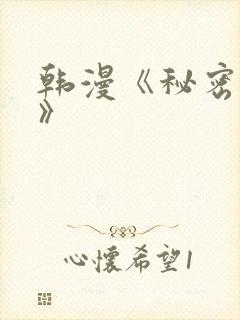 韩漫《秘密
》
心懷希望1